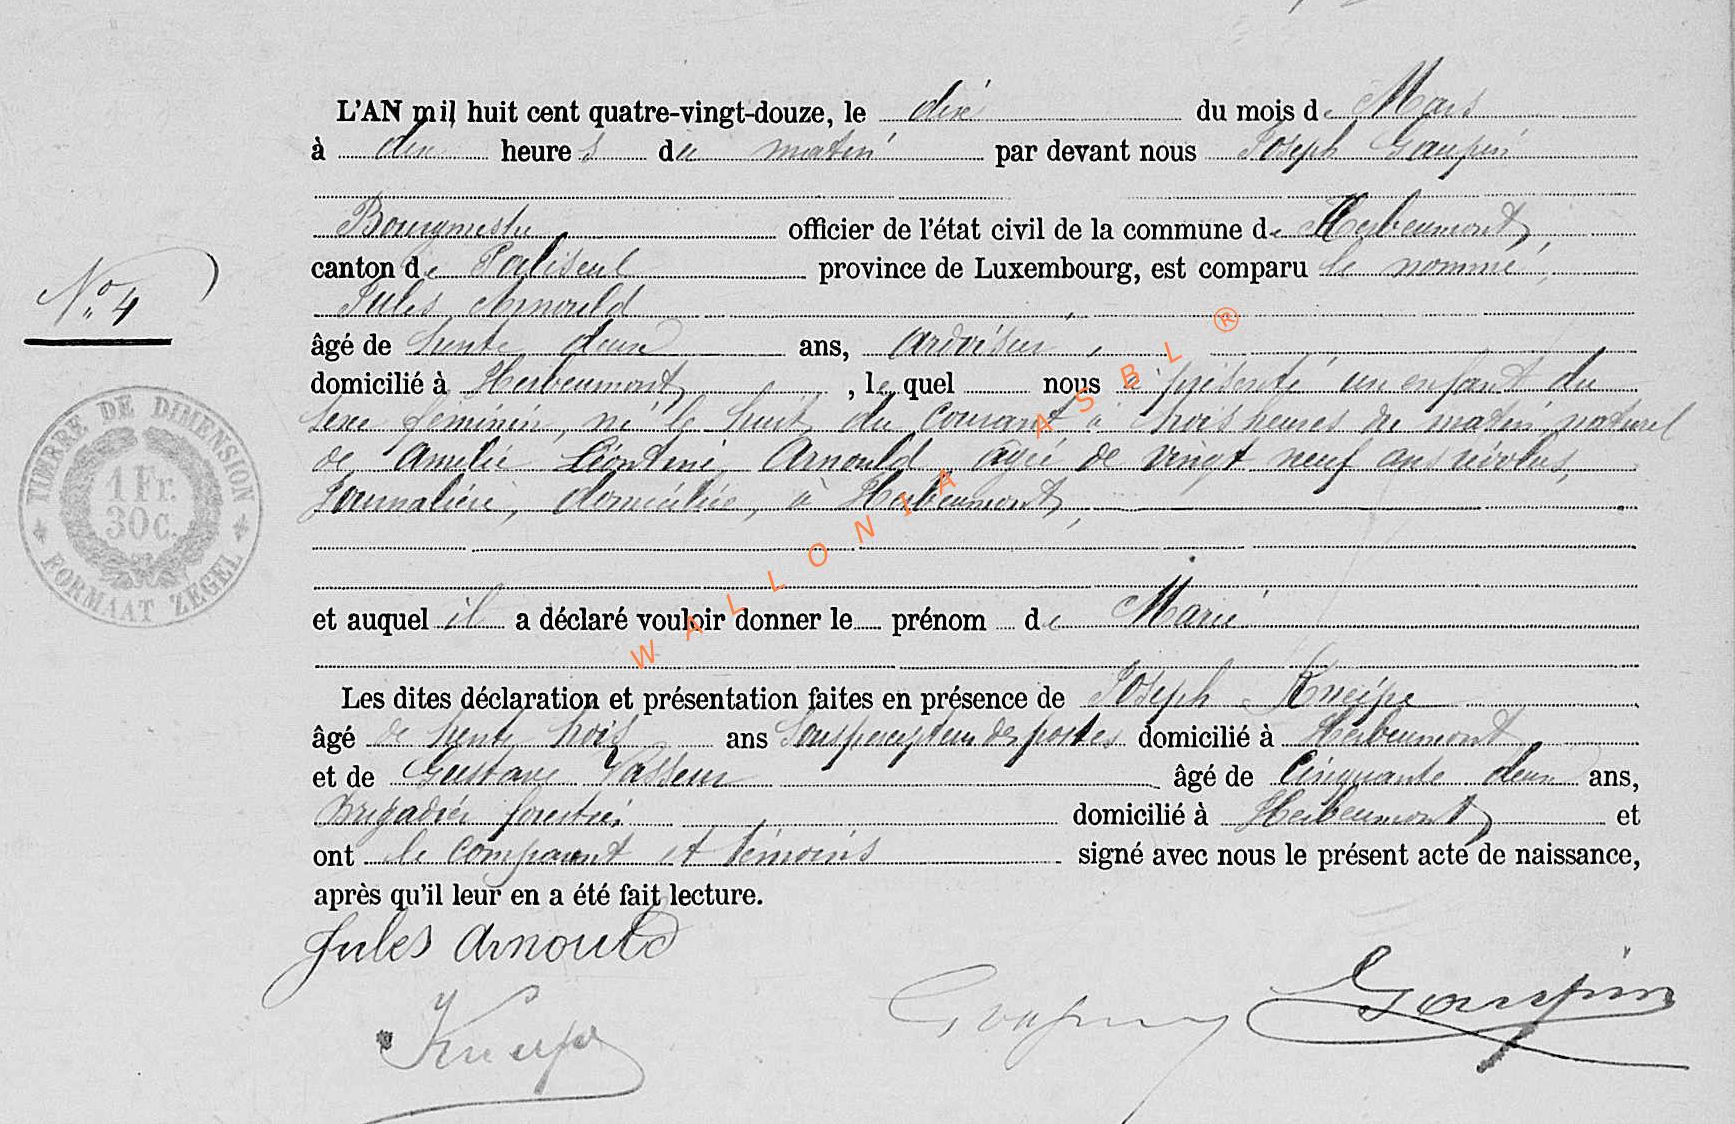 L'AN mil huit cent quatre-vingt-douze, le dix du mois de Mars
à dix heures du matin par devant nous Joseph Goupin
Bourgmestre officier de l'état civil de la commune de Herbeumont,
canton de Paliseul province de Luxembourg, est comparu le nommé,
N° 4
Jules Arnould
âgé de trente deux ans, Ardoisier,
domicilié à Herbeumont, lequel nous a présenté un enfant du
TIMBRE DE DIMENSION
1 Fr.
30 c.
FORMAAT ZEGEL
sexe féminin, né le huit du courant à trois heures du matin, naturel
de Amélie Léontine Arnould agée de vingt neuf ans révolus,
Journalière, domiciliée, à Herbeumont,
et auquel il a déclaré vouloir donner le prénom de Marie
Les dites déclaration et présentation faites en présence de Joseph Kneipe
âgé de trente trois ans Souspercepteur des postes domicilié à Herbeumont
et de Gustave Vasseur âgé de Cinquante deux ans,
Brigadier forestier domicilié à Herbeumont et
ont le comparant et témoins signé avec nous le présent acte de naissance,
après qu'il leur en a été fait lecture.
Jules Arnould
Kneipe
Goupin
WALLONIA ASBL ®